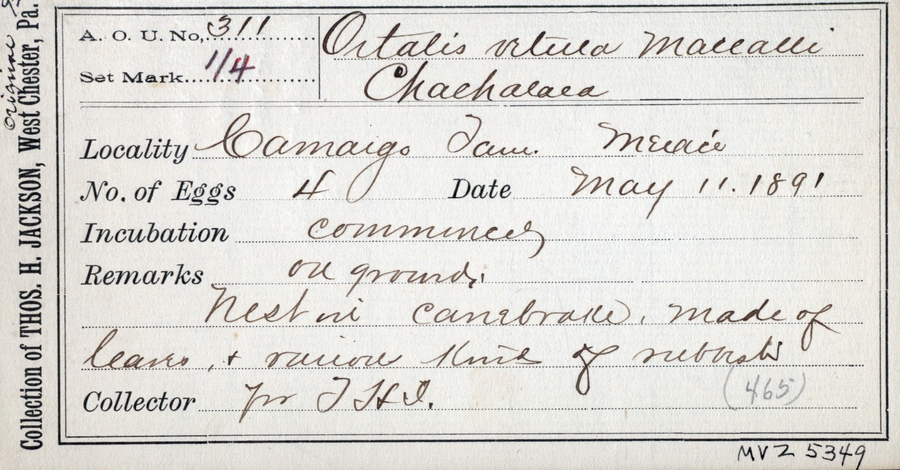 Collection of THOS. H. JACKSON, West Chester, Pa.
Original
A. O. U. No, 311
Set Mark 1/4
Ortalis vetula Maccalli
Chachalaca
Locality Camargo Tam. Mexico
No. of Eggs 4 Date May 11. 1891
Incubation commenced
Remarks on ground;
Nest in canebrake, made of
leaves, & various kind of rubbish
Collector for T H J.
(465)
MVZ 5349